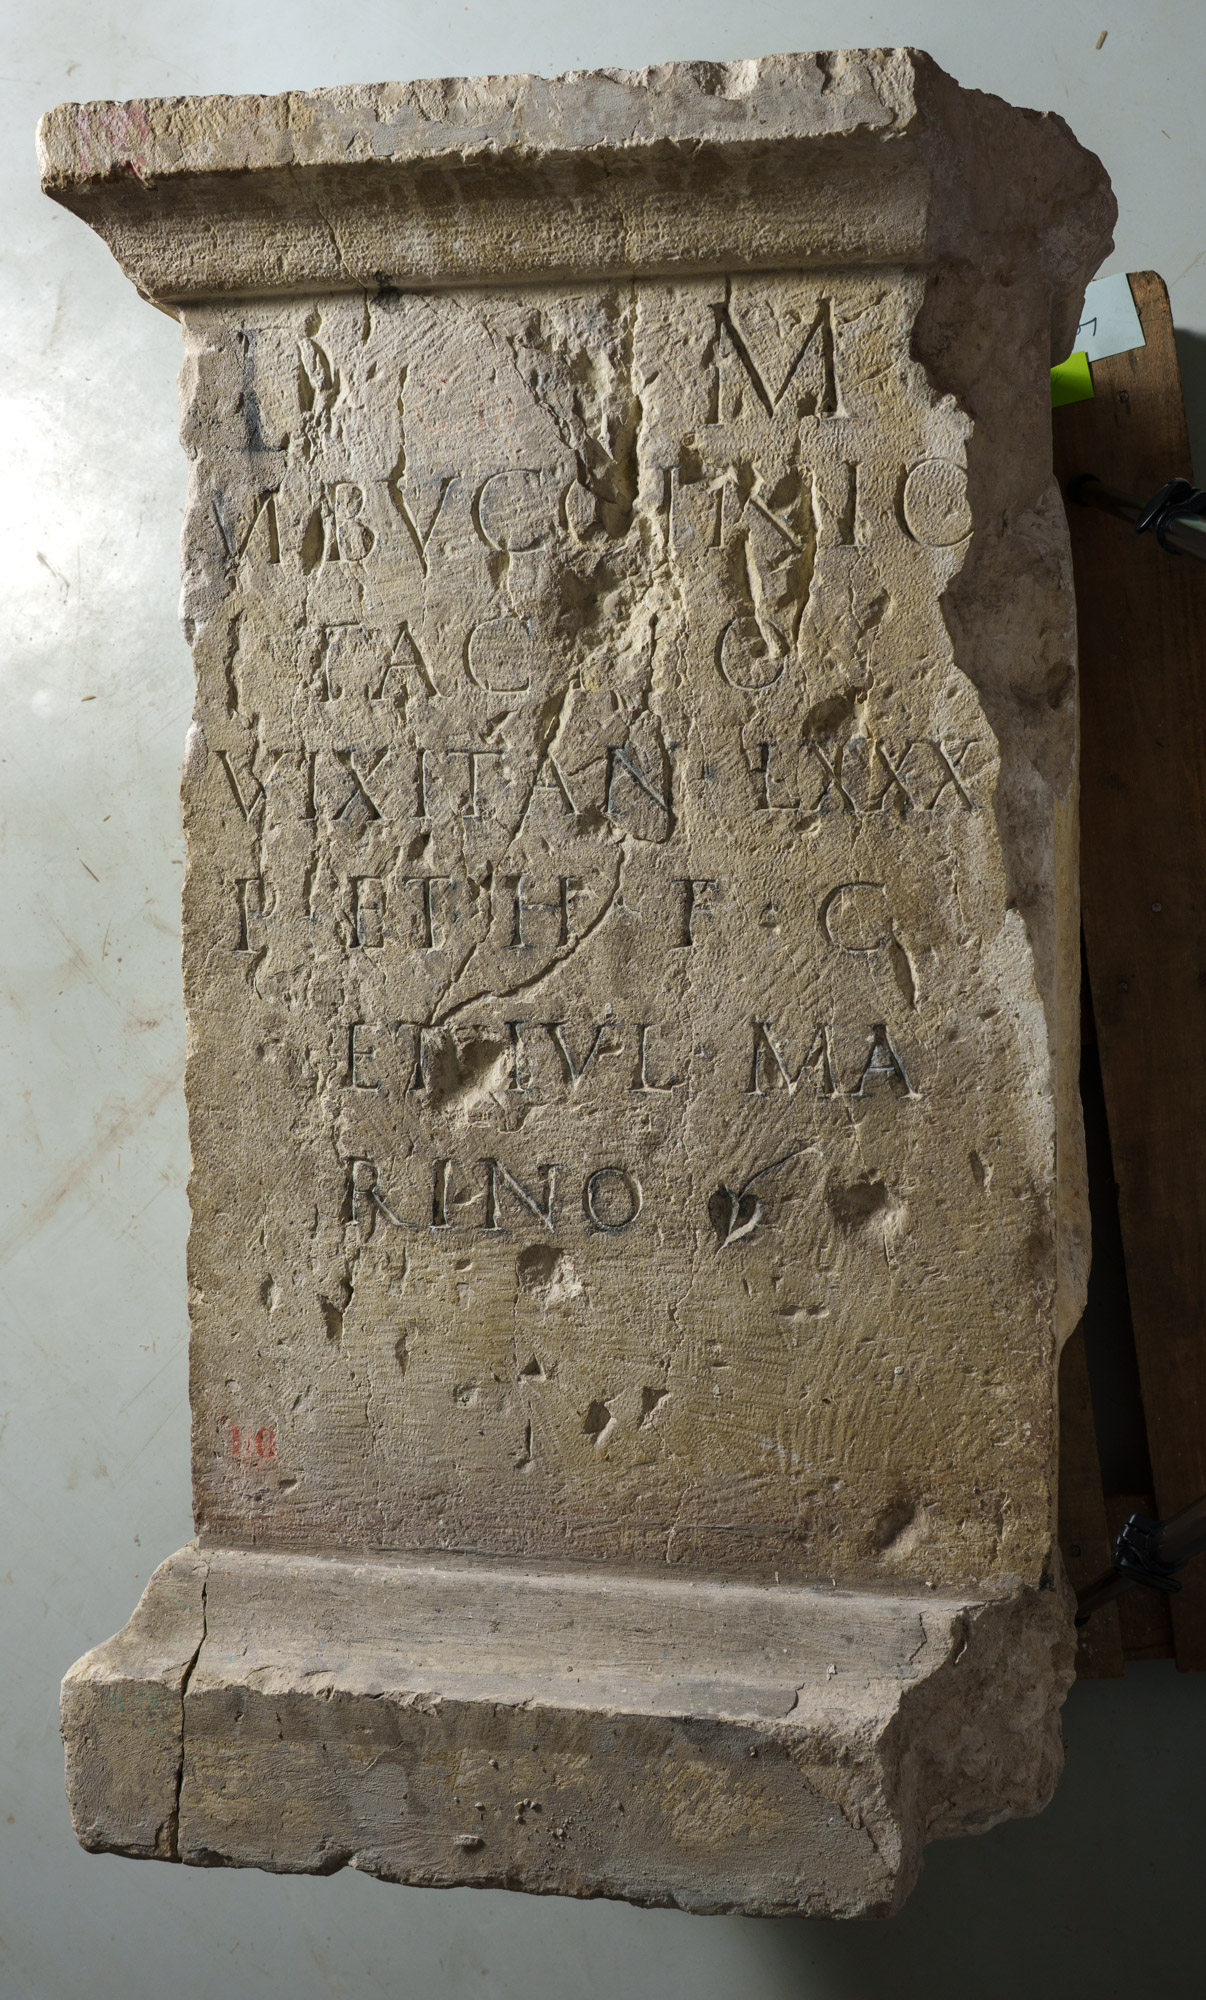 D M
M BVCCINIO
TAC O
VIXIT AN · LXXX
P · ET · H · F · C
ET IVL · MA
RINO
110